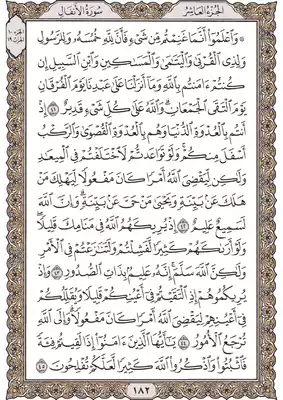 الجزء العاشر
سورة الأنفال
۞ وَٱعْلَمُوٓا۟ أَنَّمَا غَنِمْتُم مِّن شَىْءٍ فَأَنَّ لِلَّهِ خُمُسَهُۥ وَلِلرَّسُولِ
وَلِذِى ٱلْقُرْبَىٰ وَٱلْيَتَـٰمَىٰ وَٱلْمَسَـٰكِينِ وَٱبْنِ ٱلسَّبِيلِ إِن
كُنتُمْ ءَامَنتُم بِٱللَّهِ وَمَآ أَنزَلْنَا عَلَىٰ عَبْدِنَا يَوْمَ ٱلْفُرْقَانِ
يَوْمَ ٱلْتَقَى ٱلْجَمْعَانِ وَٱللَّهُ عَلَىٰ كُلِّ شَىْءٍ قَدِيرٌ ٤١ إِذْ
أَنتُم بِٱلْعُدْوَةِ ٱلدُّنْيَا وَهُم بِٱلْعُدْوَةِ ٱلْقُصْوَىٰ وَٱلرَّكْبُ
أَسْفَلَ مِنكُمْ وَلَوْ تَوَاعَدتُّمْ لَٱخْتَلَفْتُمْ فِى ٱلْمِيعَـٰدِ
وَلَـٰكِن لِّيَقْضِىَ ٱللَّهُ أَمْرًا كَانَ مَفْعُولًا لِّيَهْلِكَ مَنْ
هَلَكَ عَنۢ بَيِّنَةٍ وَيَحْيَىٰ مَنْ حَىَّ عَنۢ بَيِّنَةٍ وَإِنَّ ٱللَّهَ
لَسَمِيعٌ عَلِيمٌ ٤٢ إِذْ يُرِيكَهُمُ ٱللَّهُ فِى مَنَامِكَ قَلِيلًا
وَلَوْ أَرَىٰكَهُمْ كَثِيرًا لَّفَشِلْتُمْ وَلَتَنَـٰزَعْتُمْ فِى ٱلْأَمْرِ
وَلَـٰكِنَّ ٱللَّهَ سَلَّمَ إِنَّهُۥ عَلِيمٌۢ بِذَاتِ ٱلصُّدُورِ ٤٣ وَإِذْ
يُرِيكُمُوهُمْ إِذِ ٱلْتَقَيْتُمْ فِىٓ أَعْيُنِكُمْ قَلِيلًا وَيُقَلِّلُكُمْ
فِىٓ أَعْيُنِهِمْ لِيَقْضِىَ ٱللَّهُ أَمْرًا كَانَ مَفْعُولًا وَإِلَى ٱللَّهِ
تُرْجَعُ ٱلْأُمُورُ ٤٤ يَـٰٓأَيُّهَا ٱلَّذِينَ ءَامَنُوٓا۟ إِذَا لَقِيتُمْ فِئَةً
فَٱثْبُتُوا۟ وَٱذْكُرُوا۟ ٱللَّهَ كَثِيرًا لَّعَلَّكُمْ تُفْلِحُونَ ٤٥
١٨٢